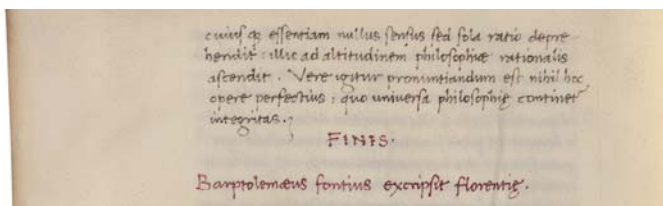 cuiuſqȝ eſſentiam nullus ſenſus ſed ſola ratio depre
hendit : illic ad altitudinem philoſophiæ rationalis
aſcendit . Vere igitur pronuntiandum eſt nihil hoc
opere perfectius : quo univerſa philoſophię continet᷑
integritas .
FINIS .
Barptolemæus fontius excripſit florentię .